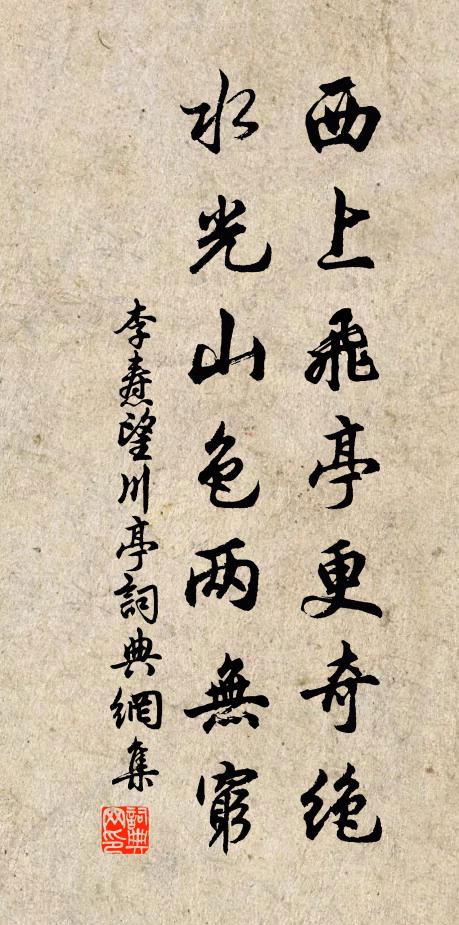 西上飛亭更奇絶
水光山色两無窮
李燾望川亭詞典網集
詞典網印